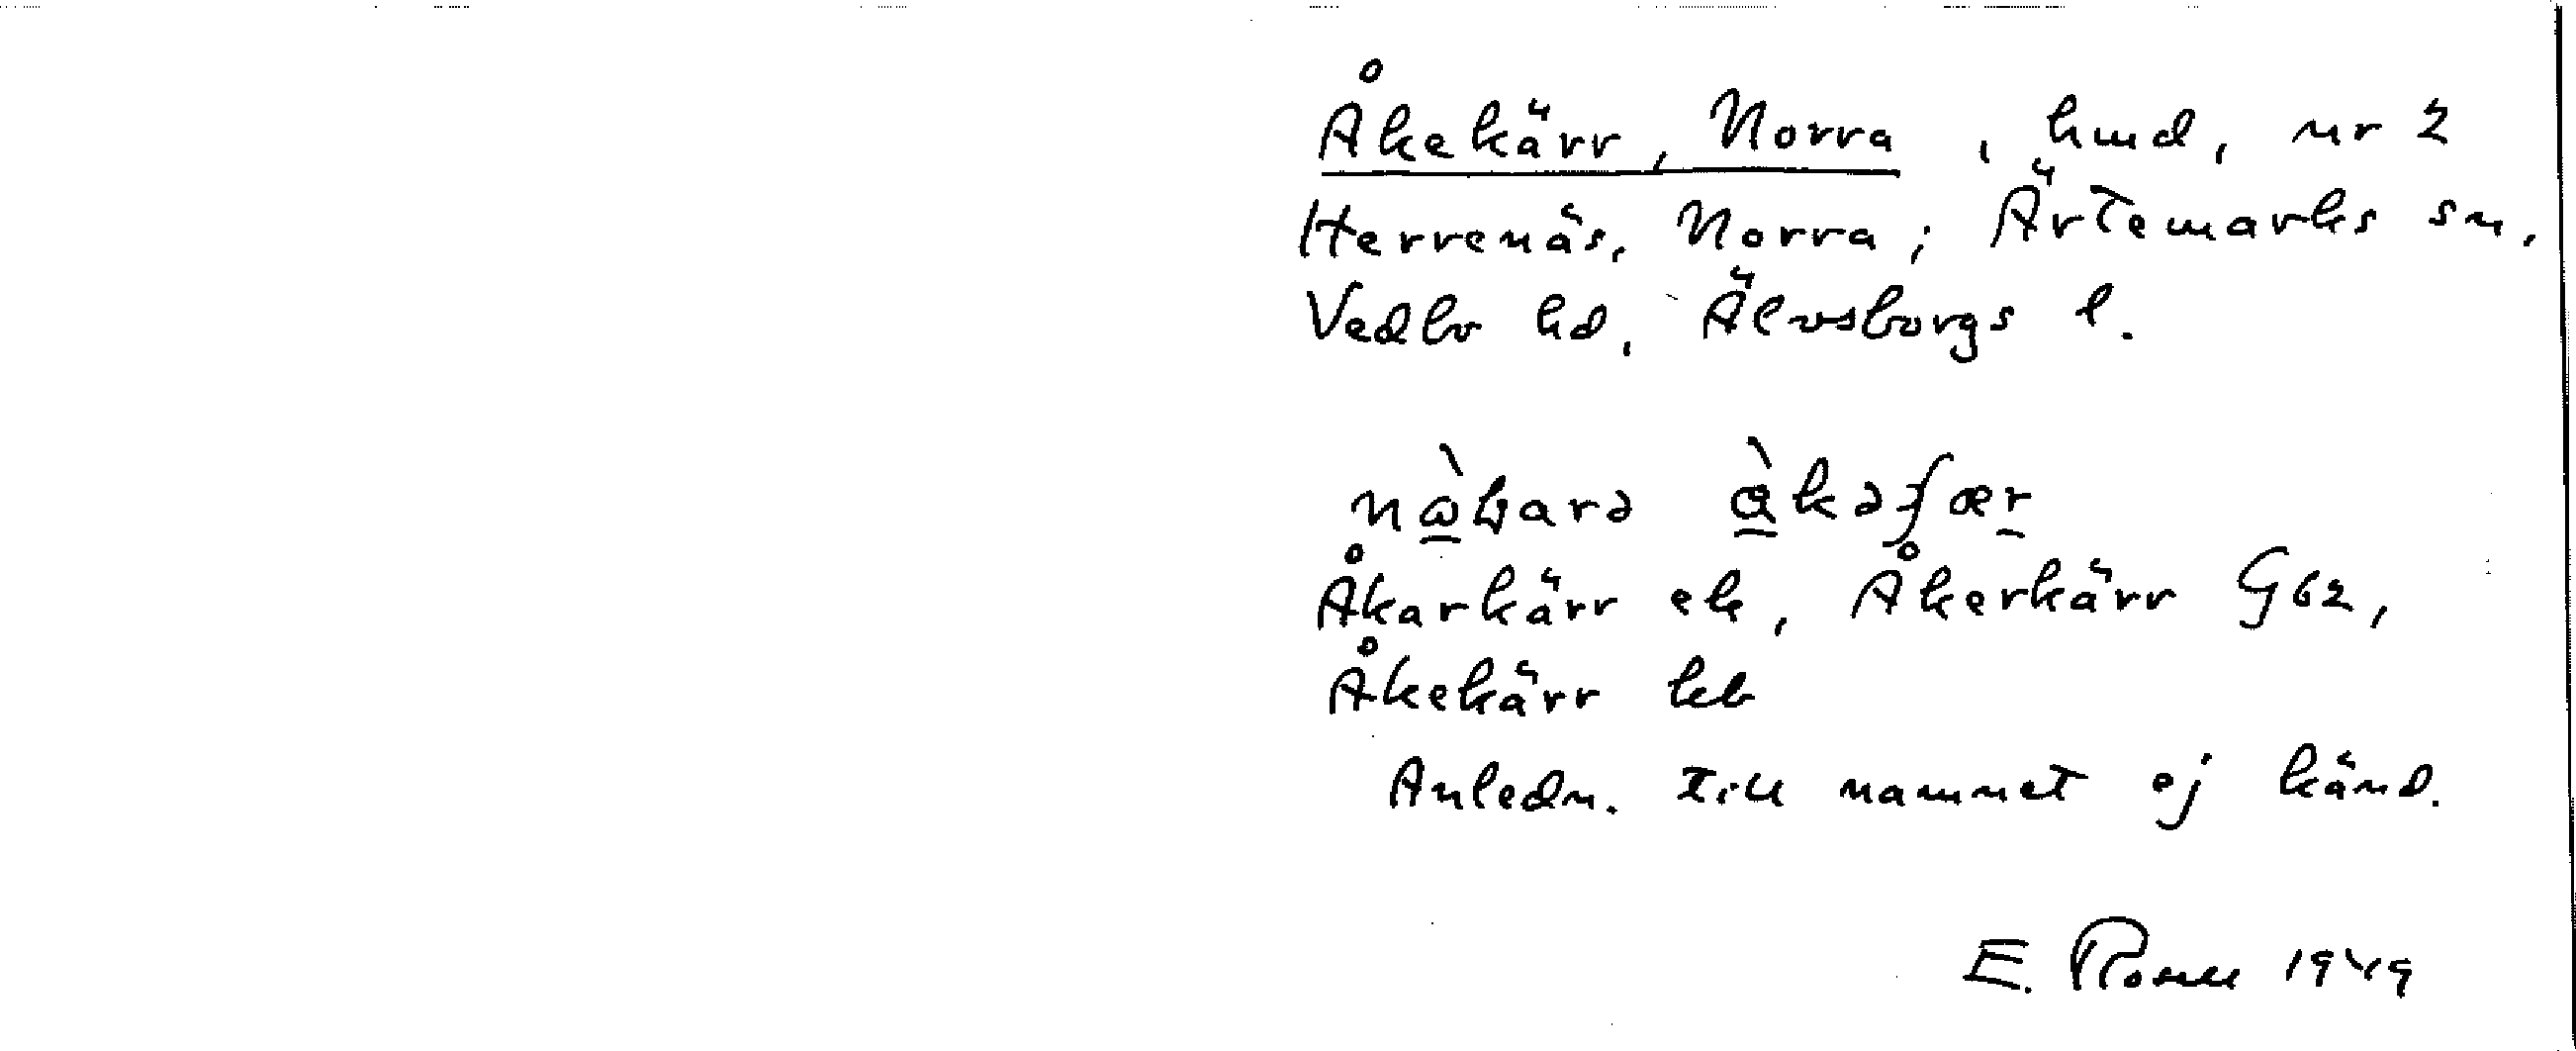 Åkekärr, Norra, hmd, nr 2
Herrenäs, Norra; Ärtemarks sn,
Vedbo hd, Älvsborgs l.
Åkarkärr ek, Åkerkärr G62,
Åkekärr kb
Anledn. till namnet ej känd.
E. 1949